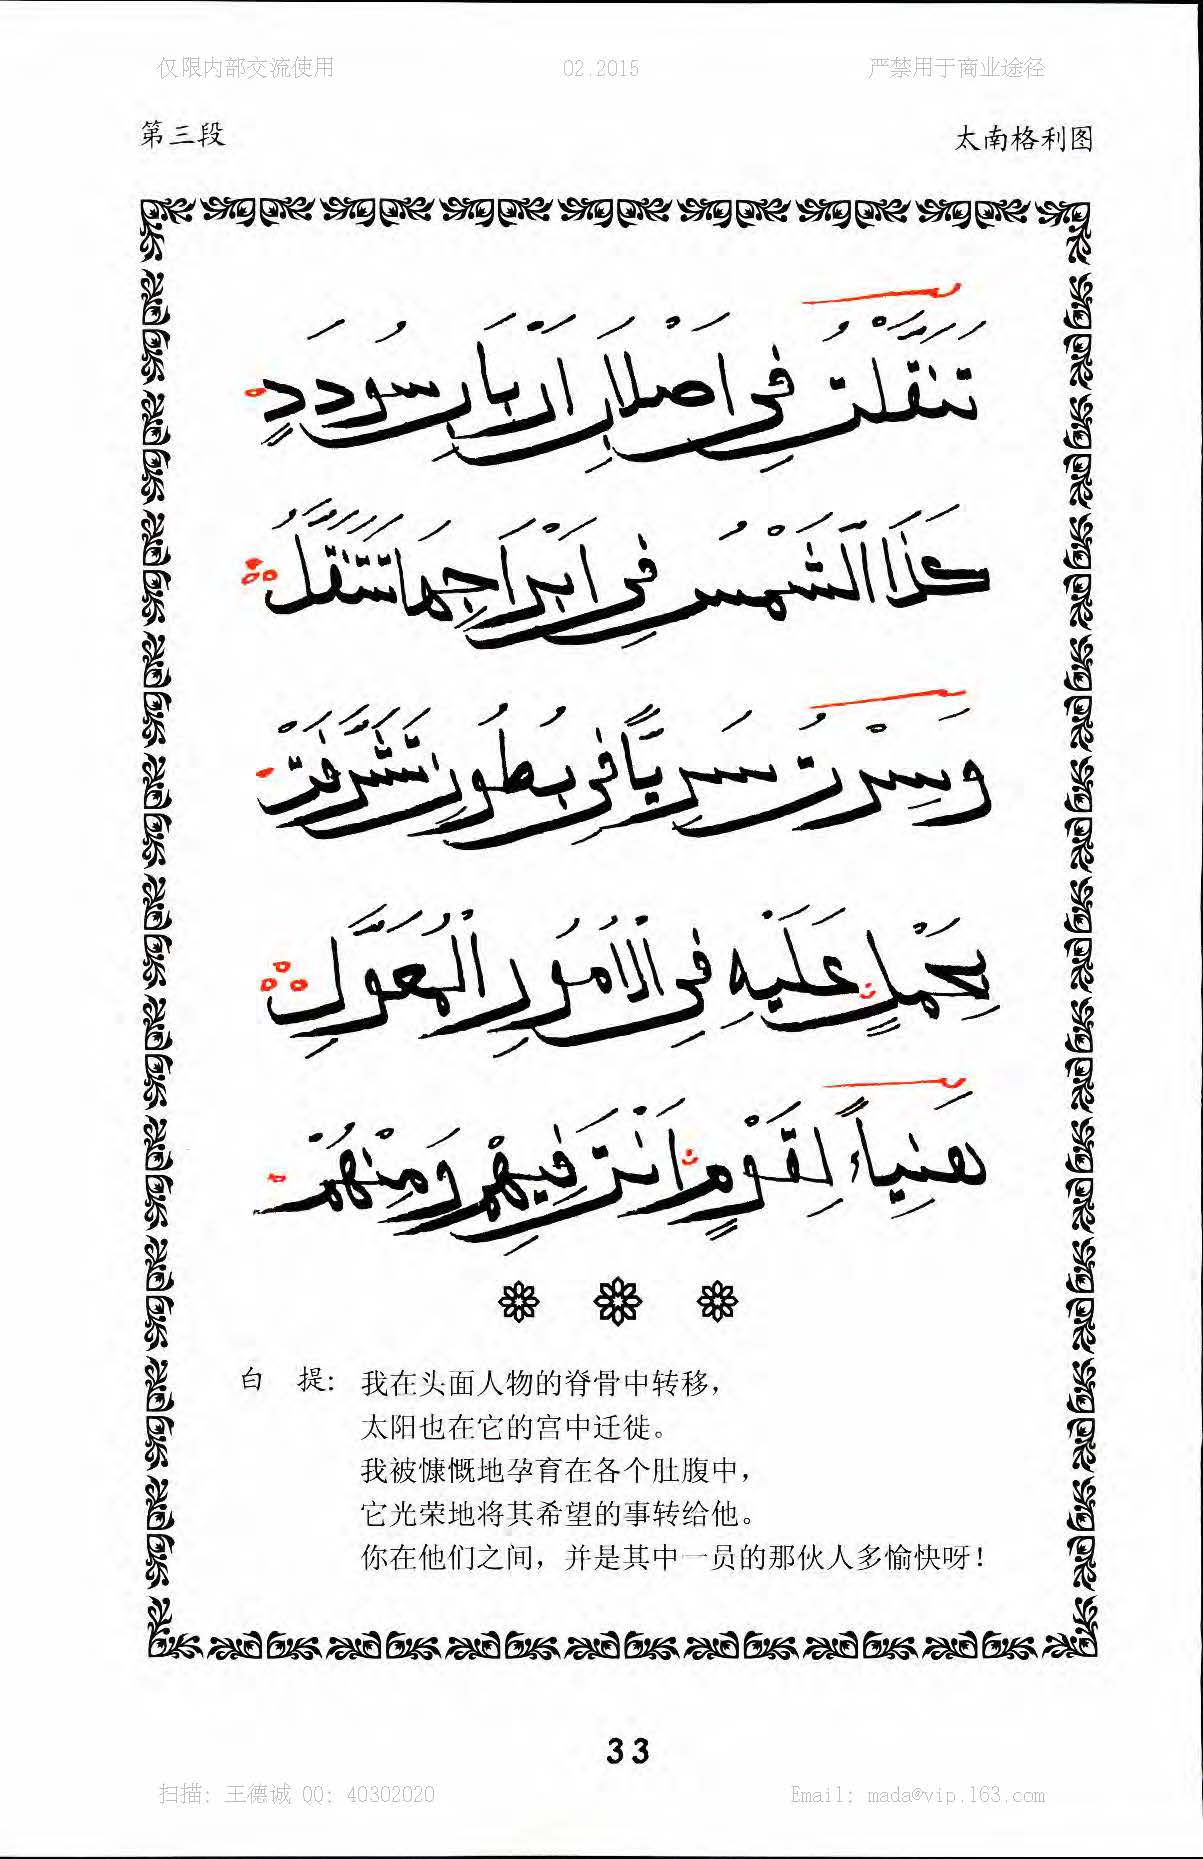 仅限内部交流使用 02.2015 严禁用于商业途径
第三段 太南格利图
تَنَقَّلْتُ فِي اَصْلَابِ اَرْبَابِ سُودَدٍ
كَذَا الشَّمْسُ فِي اَبْرَاجِهَا تَتَنَقَّلُ
وَسِرْتُ سَرِيًّا فِي بُطُونٍ تَشَرَّفَتْ
بِحَمْلٍ عَلَيْهِ فِي الْاُمُورِ الْمُعَوَّلِ
هَنِيَاءً لِقَوْمٍ اَنْتَ فِيهِمْ وَمِنْهُمْ
白 提: 我在头面人物的脊骨中转移，
太阳也在它的宫中迁徙。
我被慷慨地孕育在各个肚腹中，
它光荣地将其希望的事转给他。
你在他们之间，并是其中一员的那伙人多愉快呀！
33
扫描: 王德诚 QQ: 40302020 Email: mada@vip.163.com